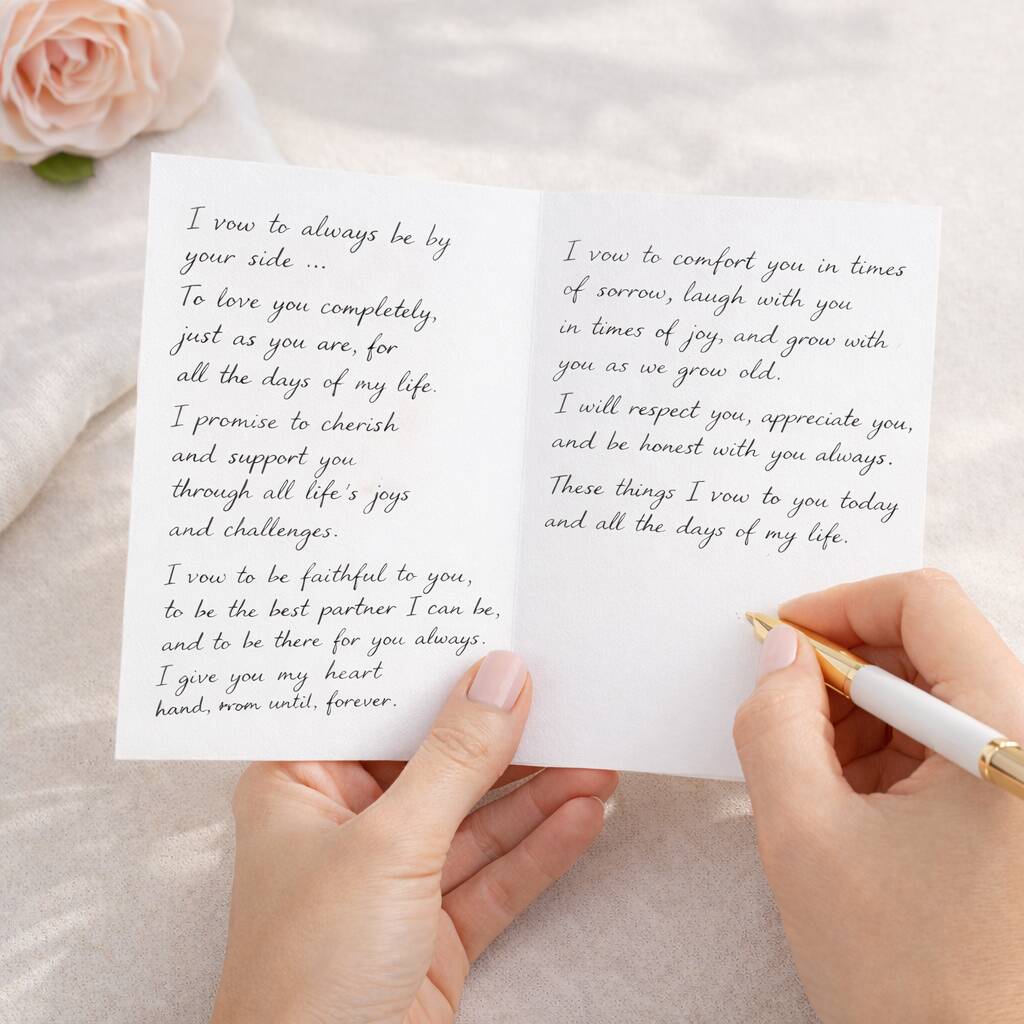 I vow to always be by
your side ...
To love you completely,
just as you are, for
all the days of my life.
I promise to cherish
and support you
through all life's joys
and challenges.
I vow to be faithful to you,
to be the best partner I can be,
and to be there for you always.
I give you my heart
hand, until, forever.
I vow to comfort you in times
of sorrow, laugh with you
in times of joy, and grow with
you as we grow old.
I will respect you, appreciate you,
and be honest with you always.
These things I vow to you today
and all the days of my life.